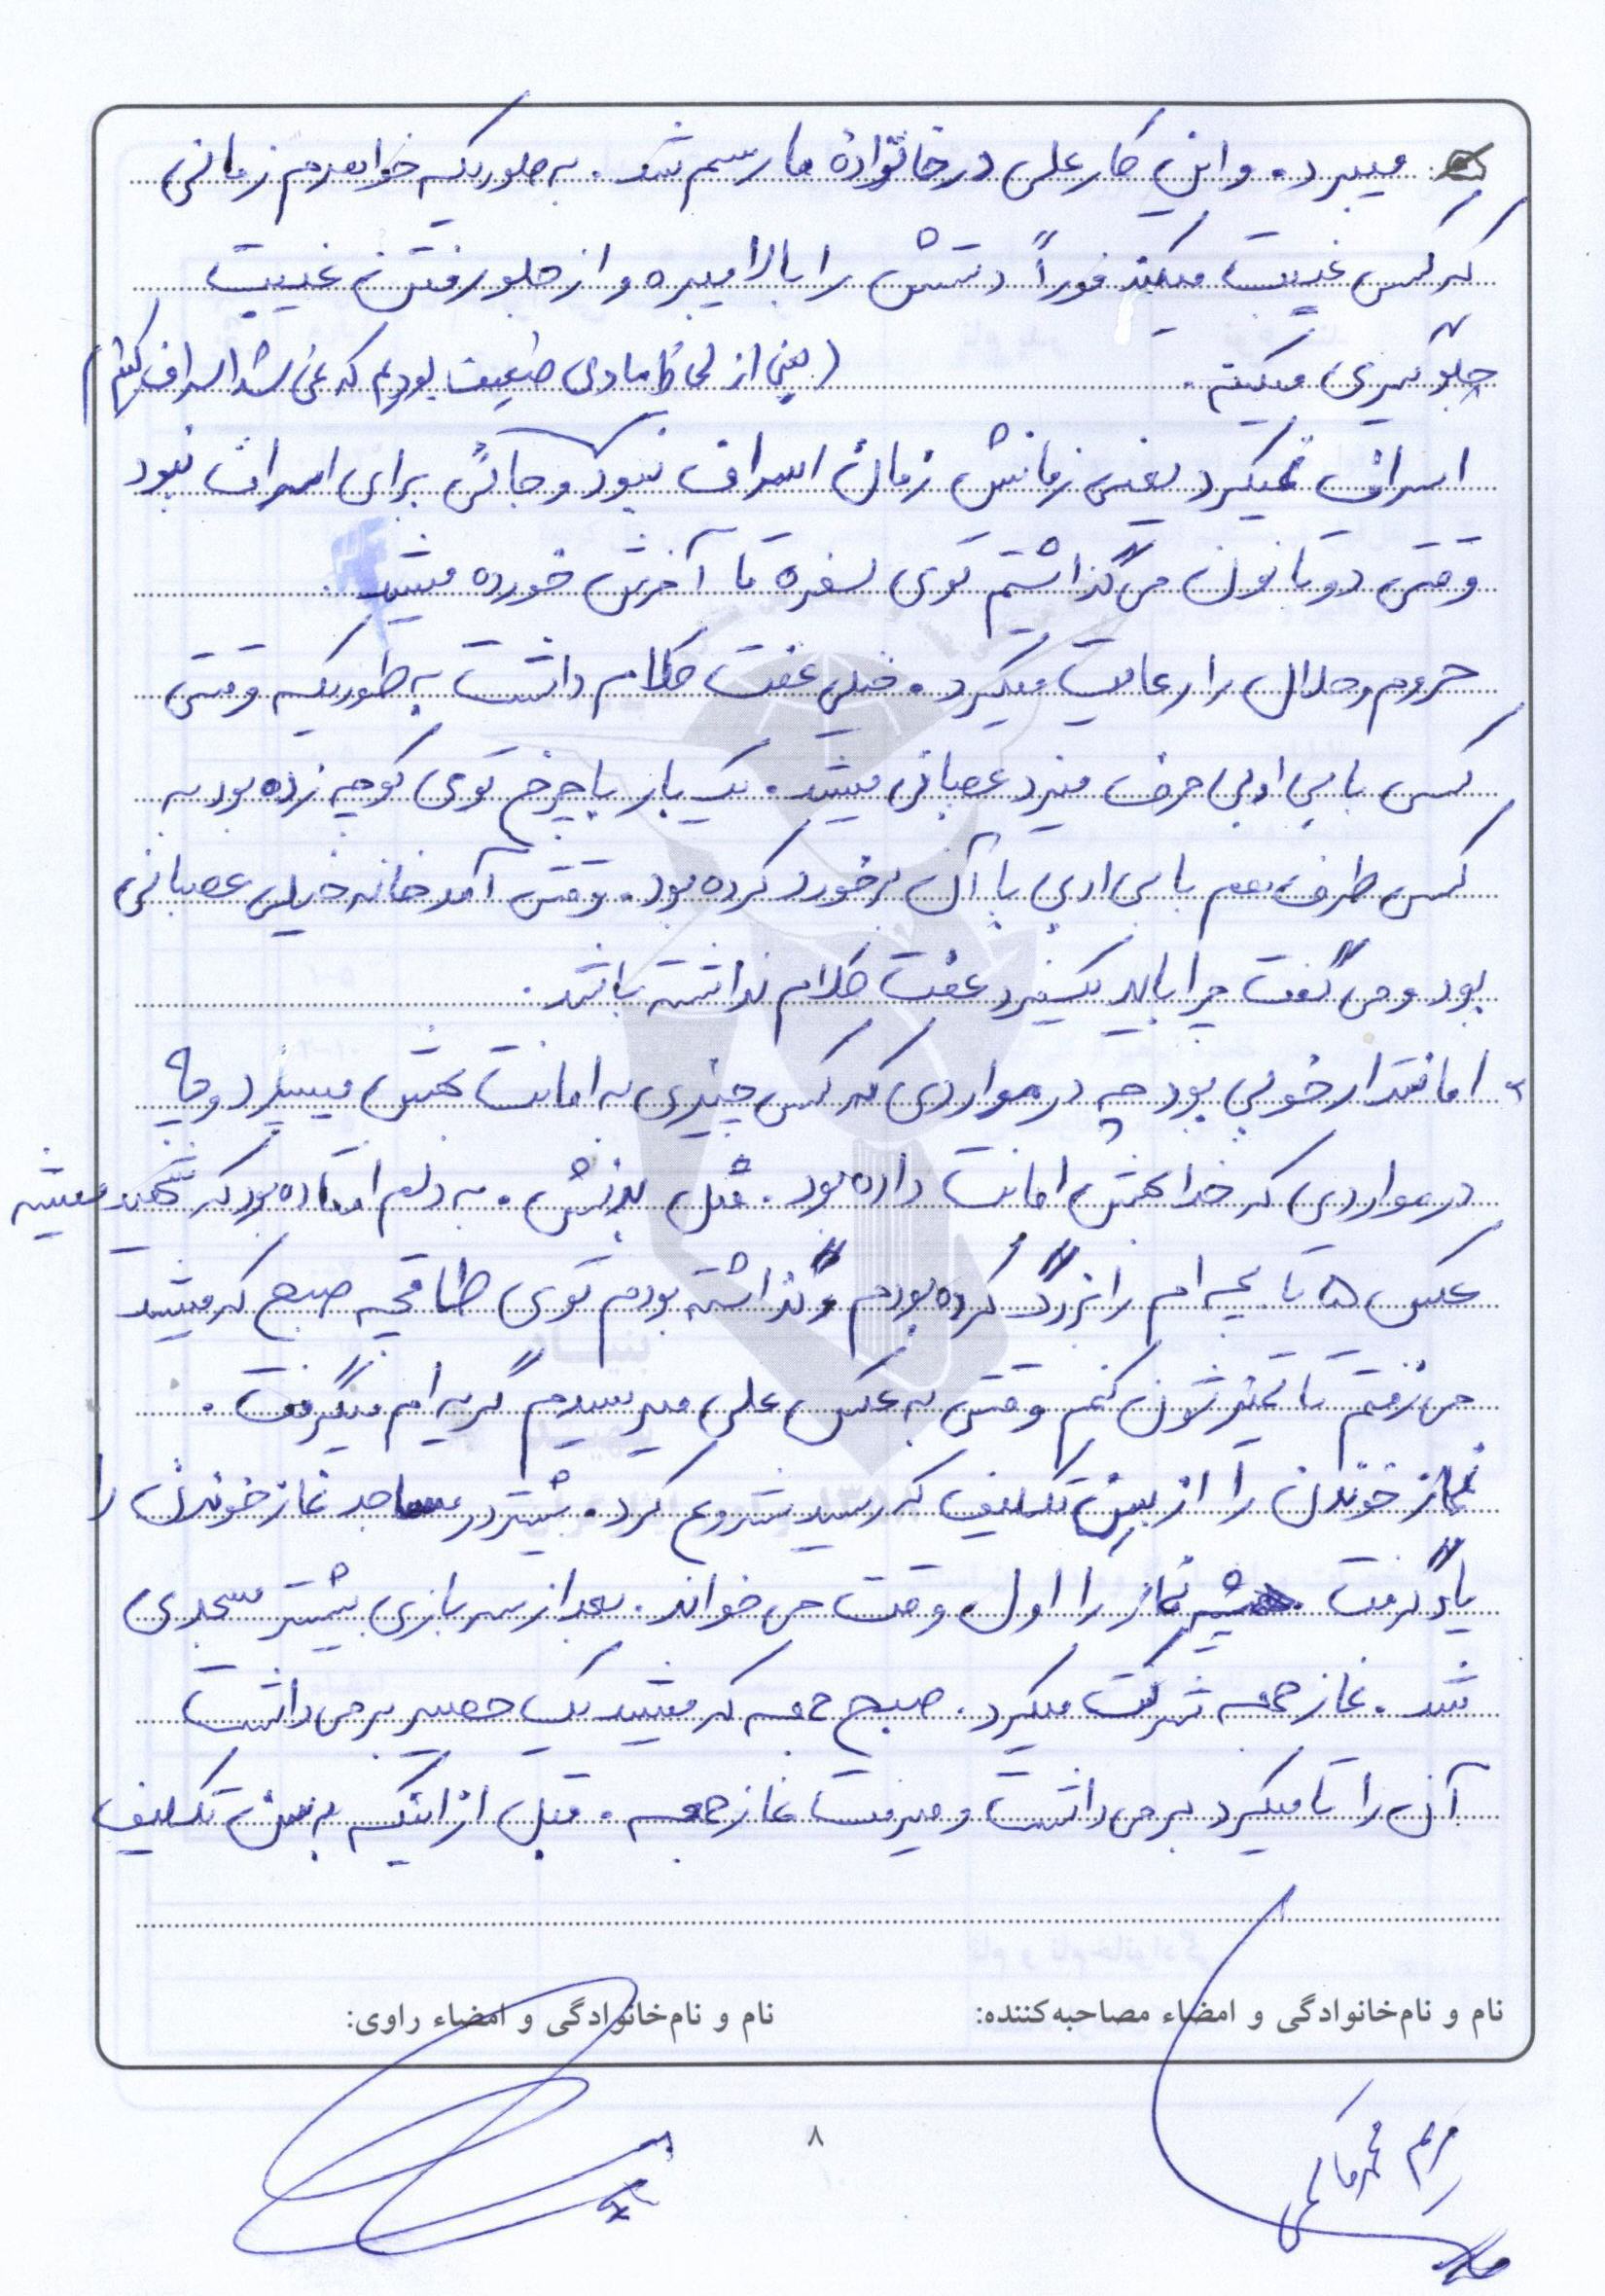 میبرد. و این کار علی در خانواده ما رسم شد. به طوریکه خواهرم زمانی
که کسی غیبت میکند فوراً دستش را بالا میبره و از جلو رفتن غیبت
جلوگیری میکنه. (یعنی از لحاظ مادی ضعیف بودیم که نمی شد اسراف کنیم)
اسراف نمیکرد یعنی زمانش زمان اسراف نبود و جائی برای اسراف نبود
وقتی دو تا نون می گذاشتم توی سفره تا آخرش خورده میشد.
حروم و حلال را رعایت میکرد. خیلی عفت کلام داشت به طوریکه وقتی
کسی با بی ادبی حرف میزد عصبانی میشد. یک بار با چرخ توی کوچه زده بود به
کسی طرف هم با بی ادبی با آن برخورد کرده بود. وقتی آمد خانه خیلی عصبانی
بود و می گفت چرا باید یک نفر عفت کلام نداشته باشد.
امانتدار خوبی بود چه در مواردی که کسی چیزی به امانت بهش میسپرد و چه
در مواردی که خدا بهش امانت داده بود. مثل بدنش. به دلم افتاده بود که شهید میشه
عکس ۵ تا بچه ام را بزرگ کرده بودم و گذاشته بودم توی طاقچه صبح که میشد
می رفتم تا تمیزشون کنم وقتی به عکس علی میرسیدم گریه ام میگرفت.
نماز خوندن را از سن تکلیف که رسید شروع کرد. بیشتر در مساجد نماز خوندن را
یاد گرفت. همیشه نماز را اول وقت می خواند. بعد از سربازی بیشتر مسجدی
شد. نماز جمعه شرکت میکرد. صبح جمعه که میشد یک حصیر برمی داشت
آن را تا میکرد برمی داشت و میرفت نماز جمعه. قبل از اینکه به سن تکلیف
نام و نام‌خانوادگی و امضاء مصاحبه‌کننده: نام و نام‌خانوادگی و امضاء راوی:
مریم
۸